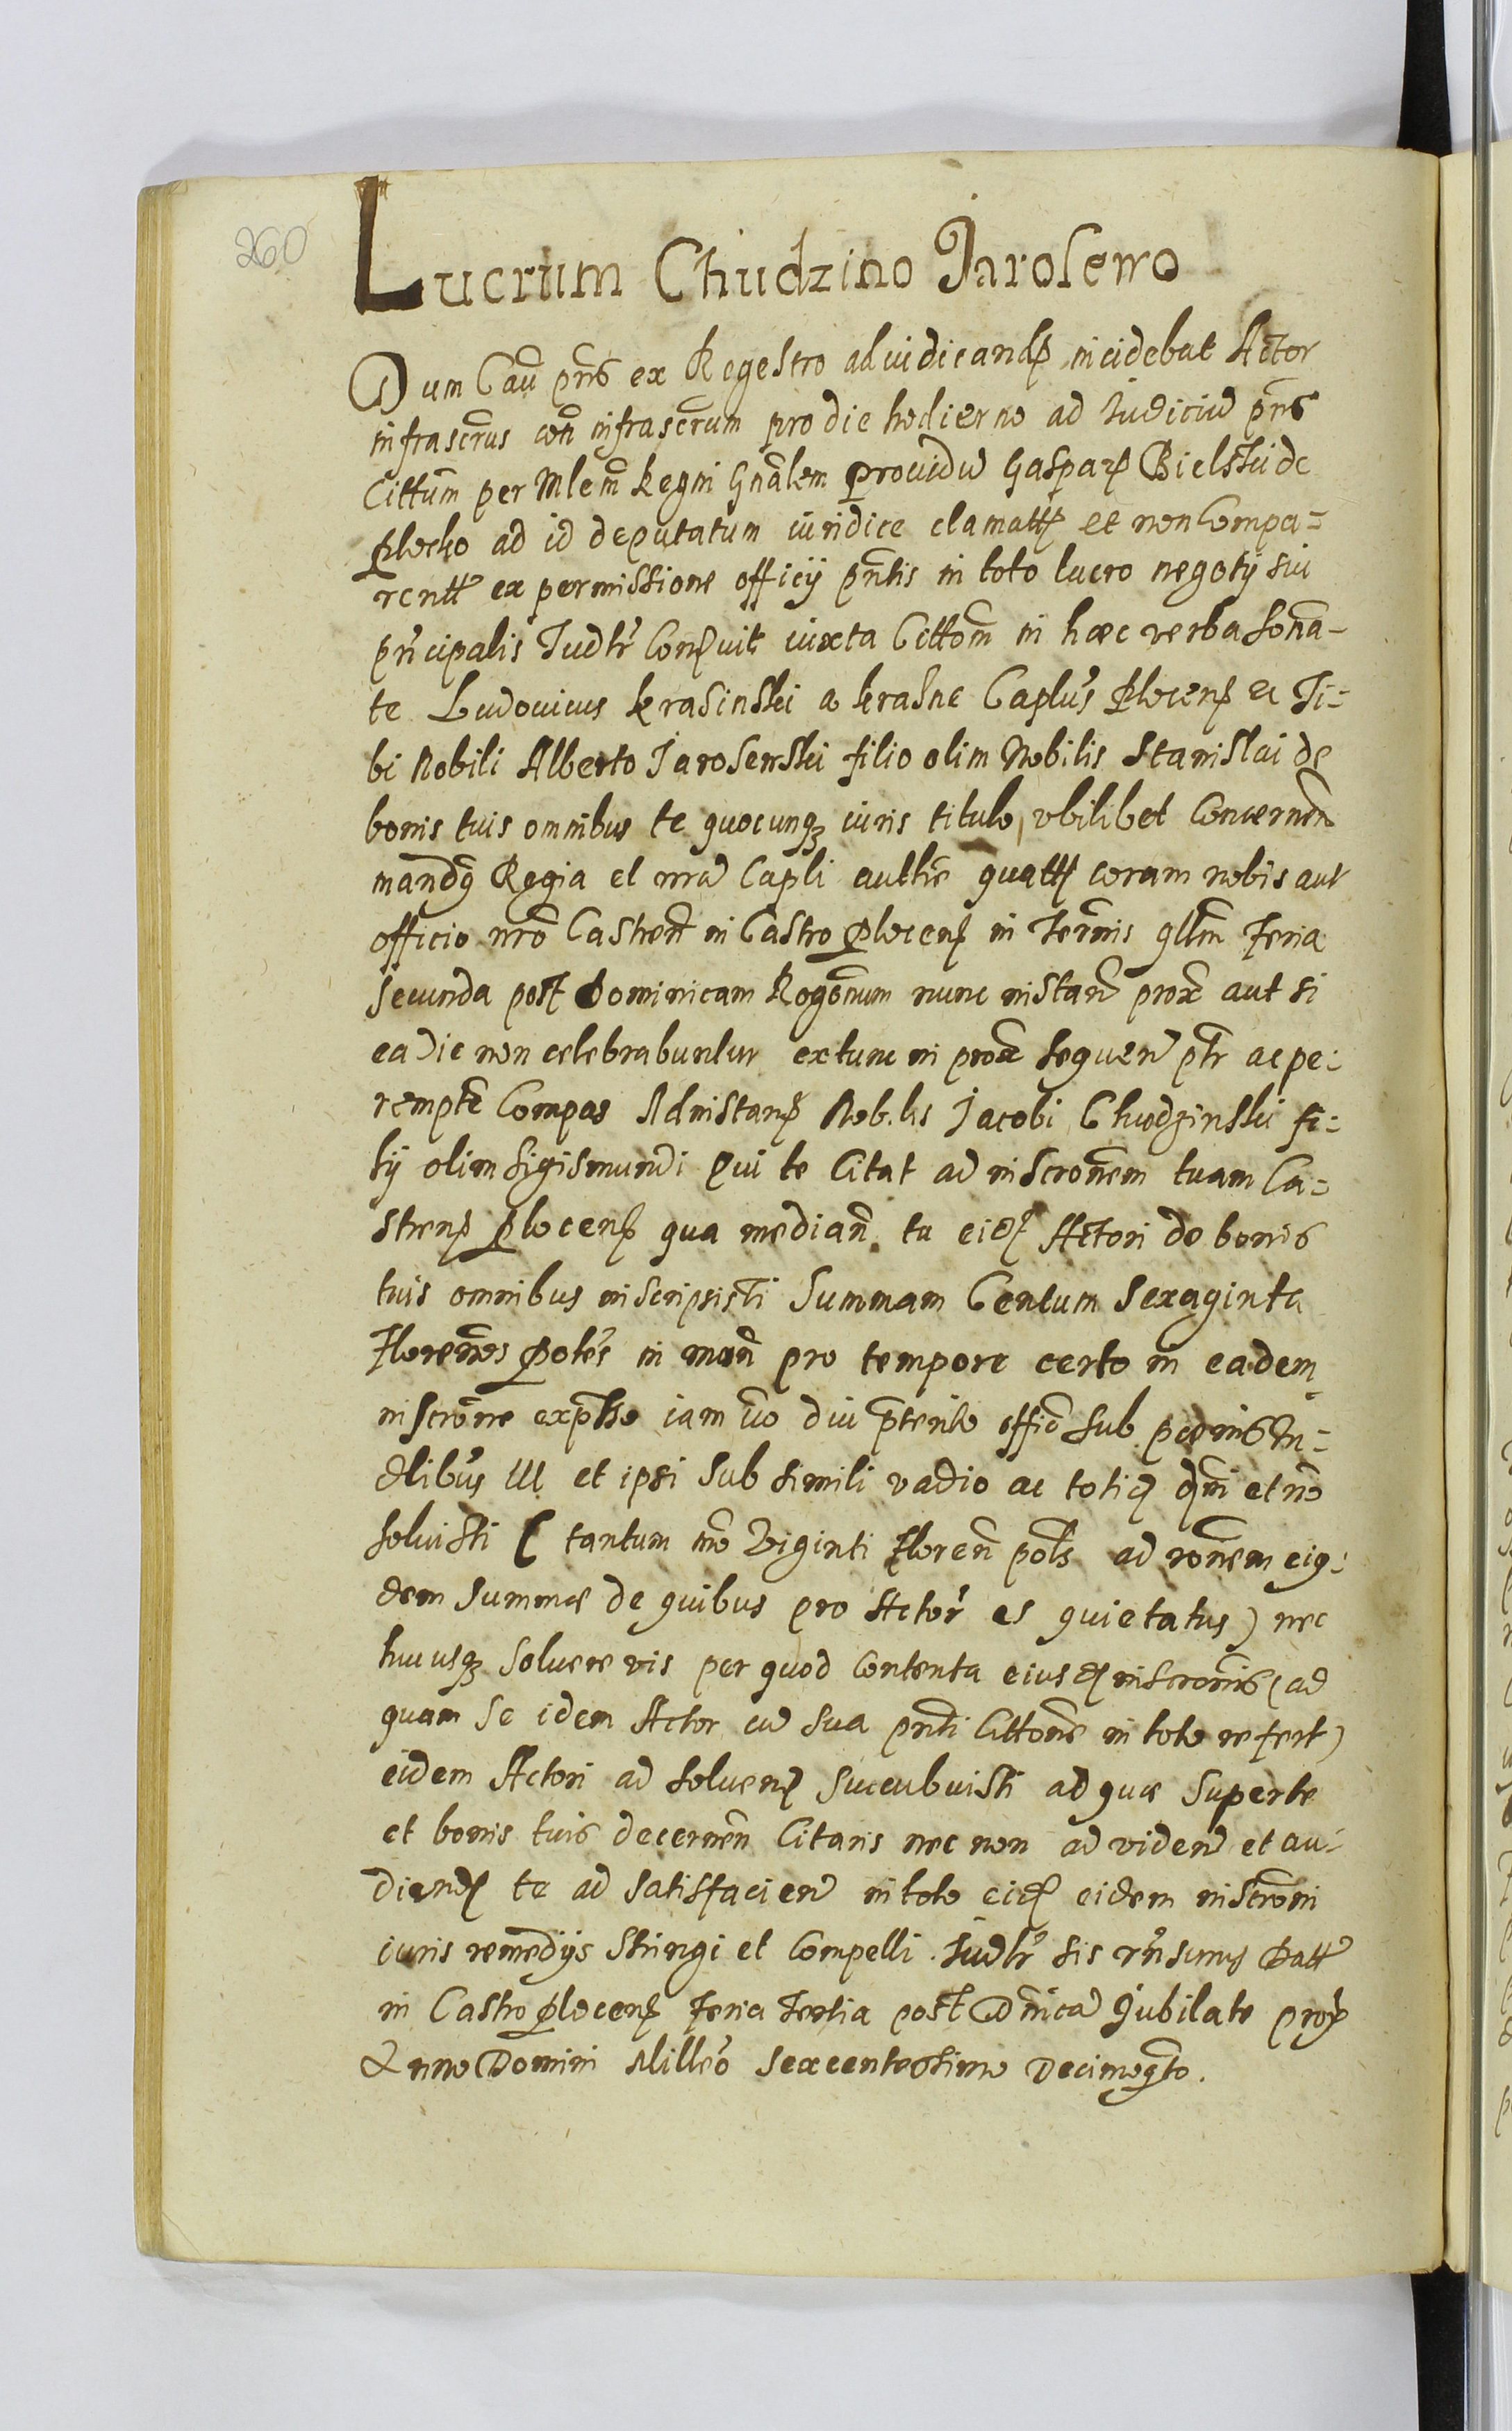 260
Lucrum Chudzino Jarosewo
Dum Cau pns ex Regestro adiudicand incidebat Actor
infrascrus con infrascrum pro die hodierno ad Iudiciu pns
Cittum per Mlem Regni Gnalem Prouidu Gaspar Bielski de
Plocko ad id deputatum iuridice clamatt et non Compa-
rentt ex permissione officij pntis in toto lucro negotij sui
principalis Iudtr Conuit iuxta Cittom in haec verba sona-
te Ludouicus Krasinski a Krasne Caplus Plocens et Ti-
bi Nobili Alberto Jarosewski filio olim Nobilis Stanislai de
bonis tuis omnibus te quocunq iuris titulo vbilibet Concernen
mandq Regia et nra Capli authe quatt coram nobis aut
officio nro Castren in Castro Plocens in Termis qllm Feria
secunda post Dominicam Rogonum nunc instan prox aut si
ea die non celebrabuntur extunc in prox sequen ptr ac pe-
rempte Compas Ad instan Nobilis Jacobi Chudzinski fi-
lij olim Sigismundi Qui te Citat ad inscronem tuam Ca-
strens Plocens qua median tu eid Actori de bonis
tuis omnibus inscripsisti Summam Centum Sexaginta
Florenos Poles in mon pro tempore certo in eadem
inscrone exprso iam vo diu pterito offic sub poenis In-
dlibus lll et ipsi sub simili vadio ac toties qni et no
soluisti ( tantum mo Viginti Floren pols ad ronem eiq-
dem Summae de quibus pro Actor es quietatus) nec
hucusq soluere vis per quod contenta eiusd inscronis (ad
quam se idem Actor cu sua pnti Cittone in toto refert)
eidem Actori ad soluen succubuisti ad quae super te
et bonis tuis decernen Citaris nec non ad viden et au-
diend te ad satisfacien in toto eid eidem inscroni
iuris remedijs stringi et Compelli. Iudtr sis rnsurus Datt
in Castro Plocens Feria Tertia post Dnica Jubilate prox
Anno Domini Milleo sexcentesimo Decimoqto.